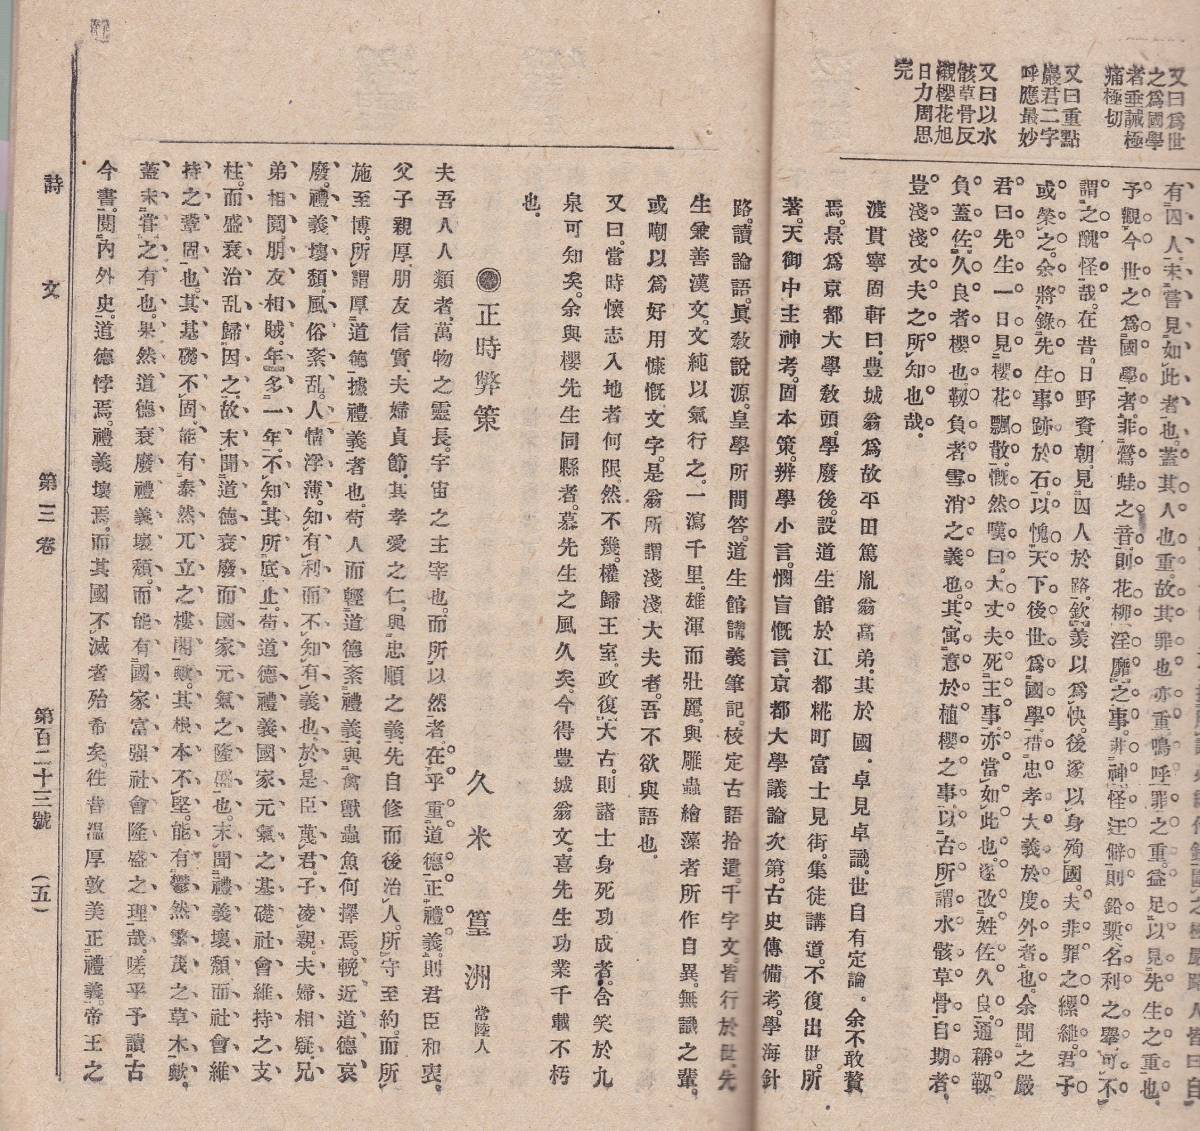 又曰爲世
之爲國學
者垂誡極
痛極切
又曰重點
嚴君二字
呼應最妙
又曰以水
骸草骨反
襯櫻花旭
日力周思
完
有囚人未嘗見如此者也。蓋其人也重。故其罪也亦重嗚呼罪之重。益足以見先生之重也。
予觀今世之爲國學者。非鶯蛙之音。則花柳淫靡之事。非神怪汪僻。則鉛槧名利之擧。可不
謂之醜怪哉。在昔。日野資朝。見囚人於路。欽羨以爲快。後遂以身殉國。夫非罪之縲紲。君子
或榮之。余將錄先生事跡於石。以愧天下後世爲國學。措忠孝大義於度外者也。余聞之嚴
君曰。先生一日見櫻花飄散。慨然嘆曰。大丈夫死王事。亦當如此也。遂改姓佐久良。通稱靱
負。蓋佐久良者櫻也。靱負者雪消之義也。其寓意於植櫻之事。以古所謂水骸草骨自期者。
豈淺淺丈夫之所知也哉。
渡貫寧固軒曰。豊城翁爲故平田篤胤翁高弟。其於國。卓見卓識。世自有定論。余不敢贅
焉。景爲京都大學敎頭。學廢後。設道生館於江都糀町富士見街。集徒講道。不復出世。所
著。天御中主神考。固本策。辨學小言。憫盲慨言。京都大學議論次第。古史傳備考。學海針
路。讀論語。眞敎說源。皇學所問答。道生館講義筆記。校定古語拾遺。千字文。皆行於世。先
生兼善漢文。文純以氣行之。一瀉千里。雄渾而壯麗。與雕蟲繪藻者所作自異。無識之輩。
或嘲以爲好用慷慨文字。是翁所謂淺淺大夫者。吾不欲與語也。
又曰。當時懷志入地者何限。然不幾。權歸王室。政復大古。則諸士身死功成者。含笑於九
泉可知矣。余與櫻先生同縣者。慕先生之風久矣。今得豊城翁文。喜先生功業千載不朽
也。
正時弊策
久米篁洲 常陸人
夫吾人人類者。萬物之靈長。宇宙之主宰也。而所以然者。在乎重道德正禮義。則君臣和衷。
父子親厚。朋友信實。夫婦貞節。其孝愛之仁。與忠順之義。先自修而後治人。所守至約。而所
施至博。所謂厚道德據禮義者也。苟人而輕道德紊禮義。與禽獸蟲魚何擇焉。輓近道德衰
廢。禮義壞頽。風俗紊乱。人情浮薄。知有利而不知有義也。於是臣蔑君。子凌親。夫婦相疑。兄
弟相鬩。朋友相賊。年多一年。不知其所底止。苟道德禮義國家元氣之基礎社會維持之支
柱。而盛衰治乱歸因之。故未聞道德衰廢而國家元氣之隆盛也。未聞禮義壞頽而社會維
持之鞏固也。其基礎不固。能有泰然兀立之樓閣歟。其根本不堅。能有鬱然繁茂之草木歟。
蓋未嘗之有也。果然道德衰廢禮義壞頽。而能有國家富强社會隆盛之理哉。嗟乎予讀古
今書。閱內外史。道德悖焉。禮義壞焉。而其國不滅者殆希矣。徃昔溫厚敦美正禮義。帝王之
詩文 第三卷 第百二十三號 （五）